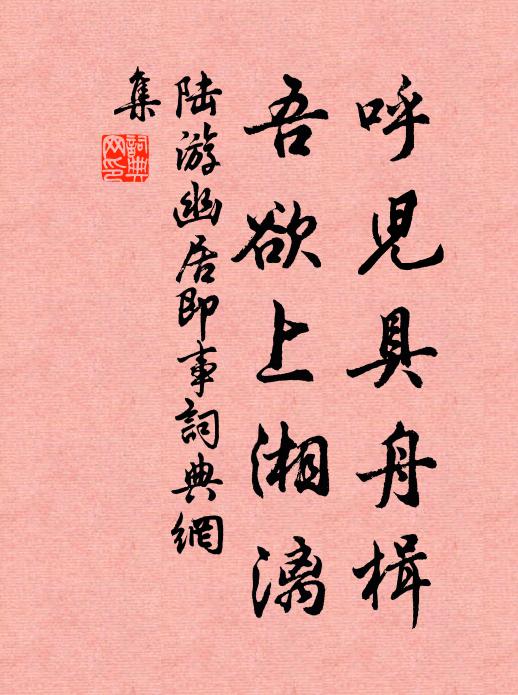 呼児具舟楫
吾欲上湘漓
陆游幽居即事詞典網
集
詞典
网印